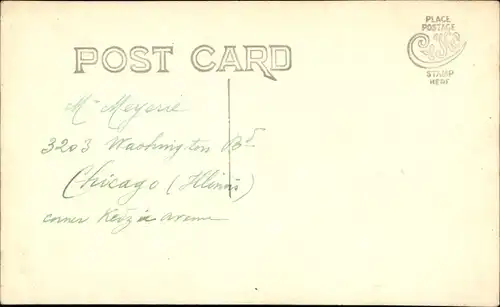 POST CARD
PLACE
POSTAGE
STAMP
HERE
Mr Meyerie
3203 Washington Bd
Chicago (Illinois)
corner Kedzie avenue